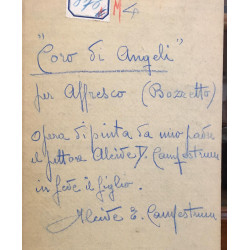 M4
"Coro di Angeli"
per Affresco (Bozzetto)
Opera dipinta da mio padre
il pittore Alcide D. Campestrini
in fede il figlio.
Alcide E. Campestrini